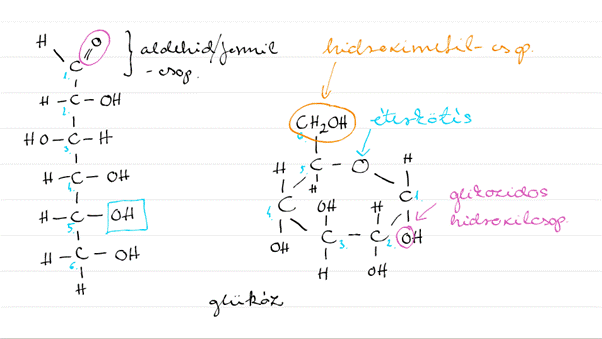 H
O
C
1.
aldehid/formil
-csop.
H - C - OH
2.
HO - C - H
3
H - C - OH
4.
H - C - OH
5.
H - C - OH
6.
H
hidroximetil-csop.
CH2OH
6
éterkötés
H
5
C
O
H
H
C
4.
OH
H
OH
C
3.
H
H
C
2.
OH
C
1
OH
glikozidos
hidroxilcsop.
glükóz